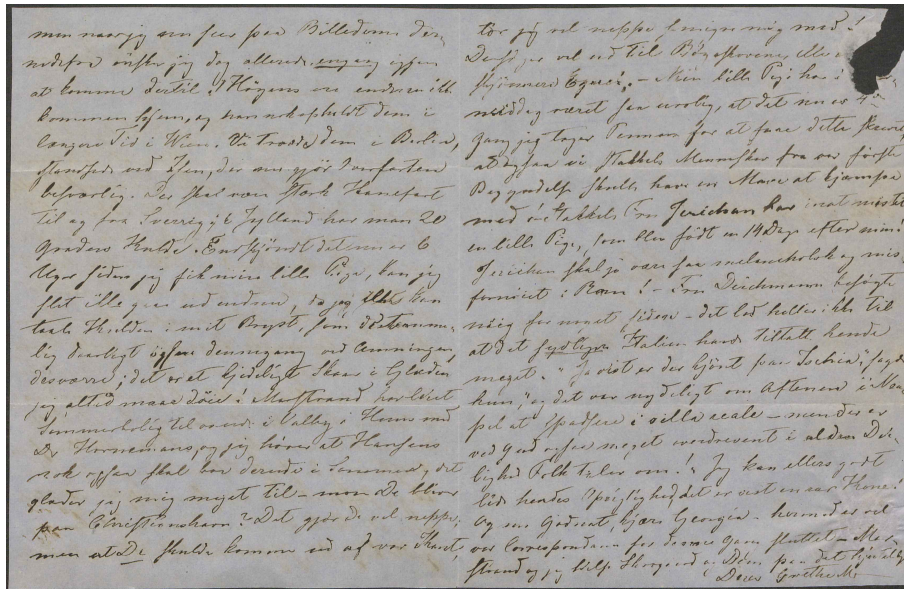 men naar jeg nu seer paa Billederne der-
nedefra ønsker jeg dog allerede engang igjen
at komme dertil! Høyens ere endnu ikke
kommen hjem, og han nok opholdt dem i
længere Tid i Wien. Vi troede dem i Berlin,
ved Isen, der nu gjør Overfarten
besværlig. Der skal være stærk Kanefart
til og fra Sverrig, i Jylland har man 20
Graders Kulde. Endskjøndt det nu er 6
Uger siden jeg fik min lille Pige, kan jeg
slet ikke gaae ud endnu, da jeg ikke kan
taale Kulden i mit Bryst, som
lig daarligt ogsaa dennegang ved Amningen,
desværre; det er et kjedeligt Skaar i Glæden
jeg altid maae døie! Marstrand har leiet
Sommerbolig til os ude i Valby, i Huus med
Dr Hornemans, og jeg hører at Hansens
nok ogsaa skal boe derude i Sommer, det
glæder jeg mig meget til – mon De bliver
paa Christianshavn? Det gjør de vel neppe,
men at De skulde komme ud af vor Kant,
tør jeg vel neppe smigre mig med!
De søger vel ud til Bøgeskovenes eller
skjønnere Egne; – Min lille Pige har i
middag været saa urolig, at det nu er 4de
Gang jeg tager Pennen for at faae dette skrevet,
at ogsaa vi stakkels Mennesker fra vor første
Begyndelse skulle have en Mave at kjæmpe
med o: Stakkels Fru Jerichau har inat mistet
en lille Pige, som blev født en 14 Dage efter min!
Jerichau skal jo være saa melancholsk og mis-
fornøiet i Rom! – Fru Deichmann besøgte
mig for noget siden – det lod heller ikke til
at det sydlige Italien havde tiltalt hende
meget. "Ja vist er der kjønt paa Ischia", sagde
hun, "og det var nydeligt om Aftenen i Nea-
pel at spadsere i villa reale – men der er
ved Gud ogsaa meget overdrevent i al den Dei-
lighed Folk taler om!" Jeg kan ellers godt
lide hendes Spøgsighed, det er vist en rar Kone!
Og nu Godnat kjære Georgia – hermed er vel
vor Correspondance for denne Gang sluttet – Mar-
strand og jeg hilse Skovgaard og Børn paa det kjærligste
Deres Grethe M.